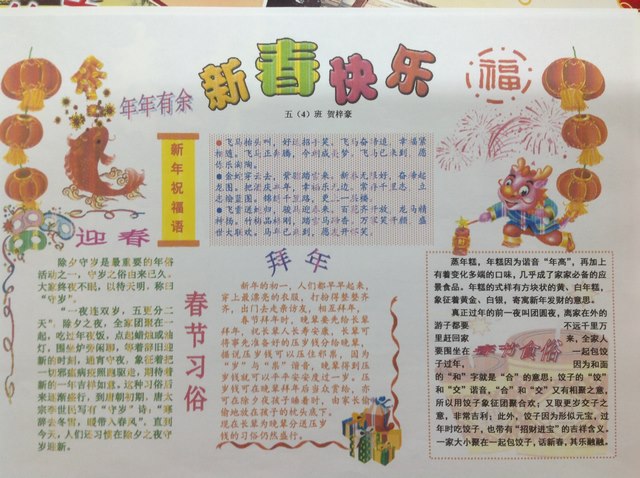 新春快乐
五（4）班 贺梓豪
年年有余
福
新年祝福语
迎春
除夕守岁是最重要的年俗
活动之一，守岁之俗由来已久。
大家终夜不眠，以待天明，称曰
“守岁”。
“一夜连双岁，五更分二
天”，除夕之夜，全家团聚在一
起，吃过年夜饭，点起蜡烛或油
灯，围坐炉旁闲聊，等着辞旧迎
新的时刻，通宵守夜，象征着把
一切邪瘟病疫照跑驱走，期待着
新的一年吉祥如意。这种习俗后
来逐渐盛行，到唐朝初期，唐太
宗李世民写有“守岁”诗：“寒
辞去冬雪，暖带入春风”。直到
今天，人们还习惯在除夕之夜守
岁迎新。
春节习俗
拜年
新年的初一，人们都早早起来，
穿上最漂亮的衣服，打扮得整整齐
齐，出门去走亲访友，相互拜年，
春节拜年时，晚辈要先给长辈
拜年，祝长辈人长寿安康，长辈可
将事先准备好的压岁钱分给晚辈，
据说压岁钱可以压住邪祟，因为
“岁”与“祟”谐音，晚辈得到压
岁钱就可以平平安安度过一岁。压
岁钱可在晚辈拜年后当众赏给，亦
可在除夕夜孩子睡着时，由家长偷
偷地放在孩子的枕头底下。
现在长辈为晚辈分送压岁
钱的习俗仍然盛行。
蒸年糕，年糕因为谐音“年高”，再加上
有着变化多端的口味，几乎成了家家必备的应
景食品。年糕的式样有方块状的黄、白年糕，
象征着黄金、白银，寄寓新年发财的意思。
真正过年的前一夜叫团圆夜，离家在外的
游子都要 不远千里万
里赶回家 来，全家人
要围坐在 一起包饺
子过年， 因为和面
春节食俗
的“和”字就是“合”的意思；饺子的“饺”
和“交”谐音，“合”和“交”又有相聚之意，
所以用饺子象征团聚合欢；又取更岁交子之
意，非常吉利；此外，饺子因为形似元宝，过
年时吃饺子，也带有“招财进宝”的吉祥含义。
一家大小聚在一起包饺子，话新春，其乐融融。